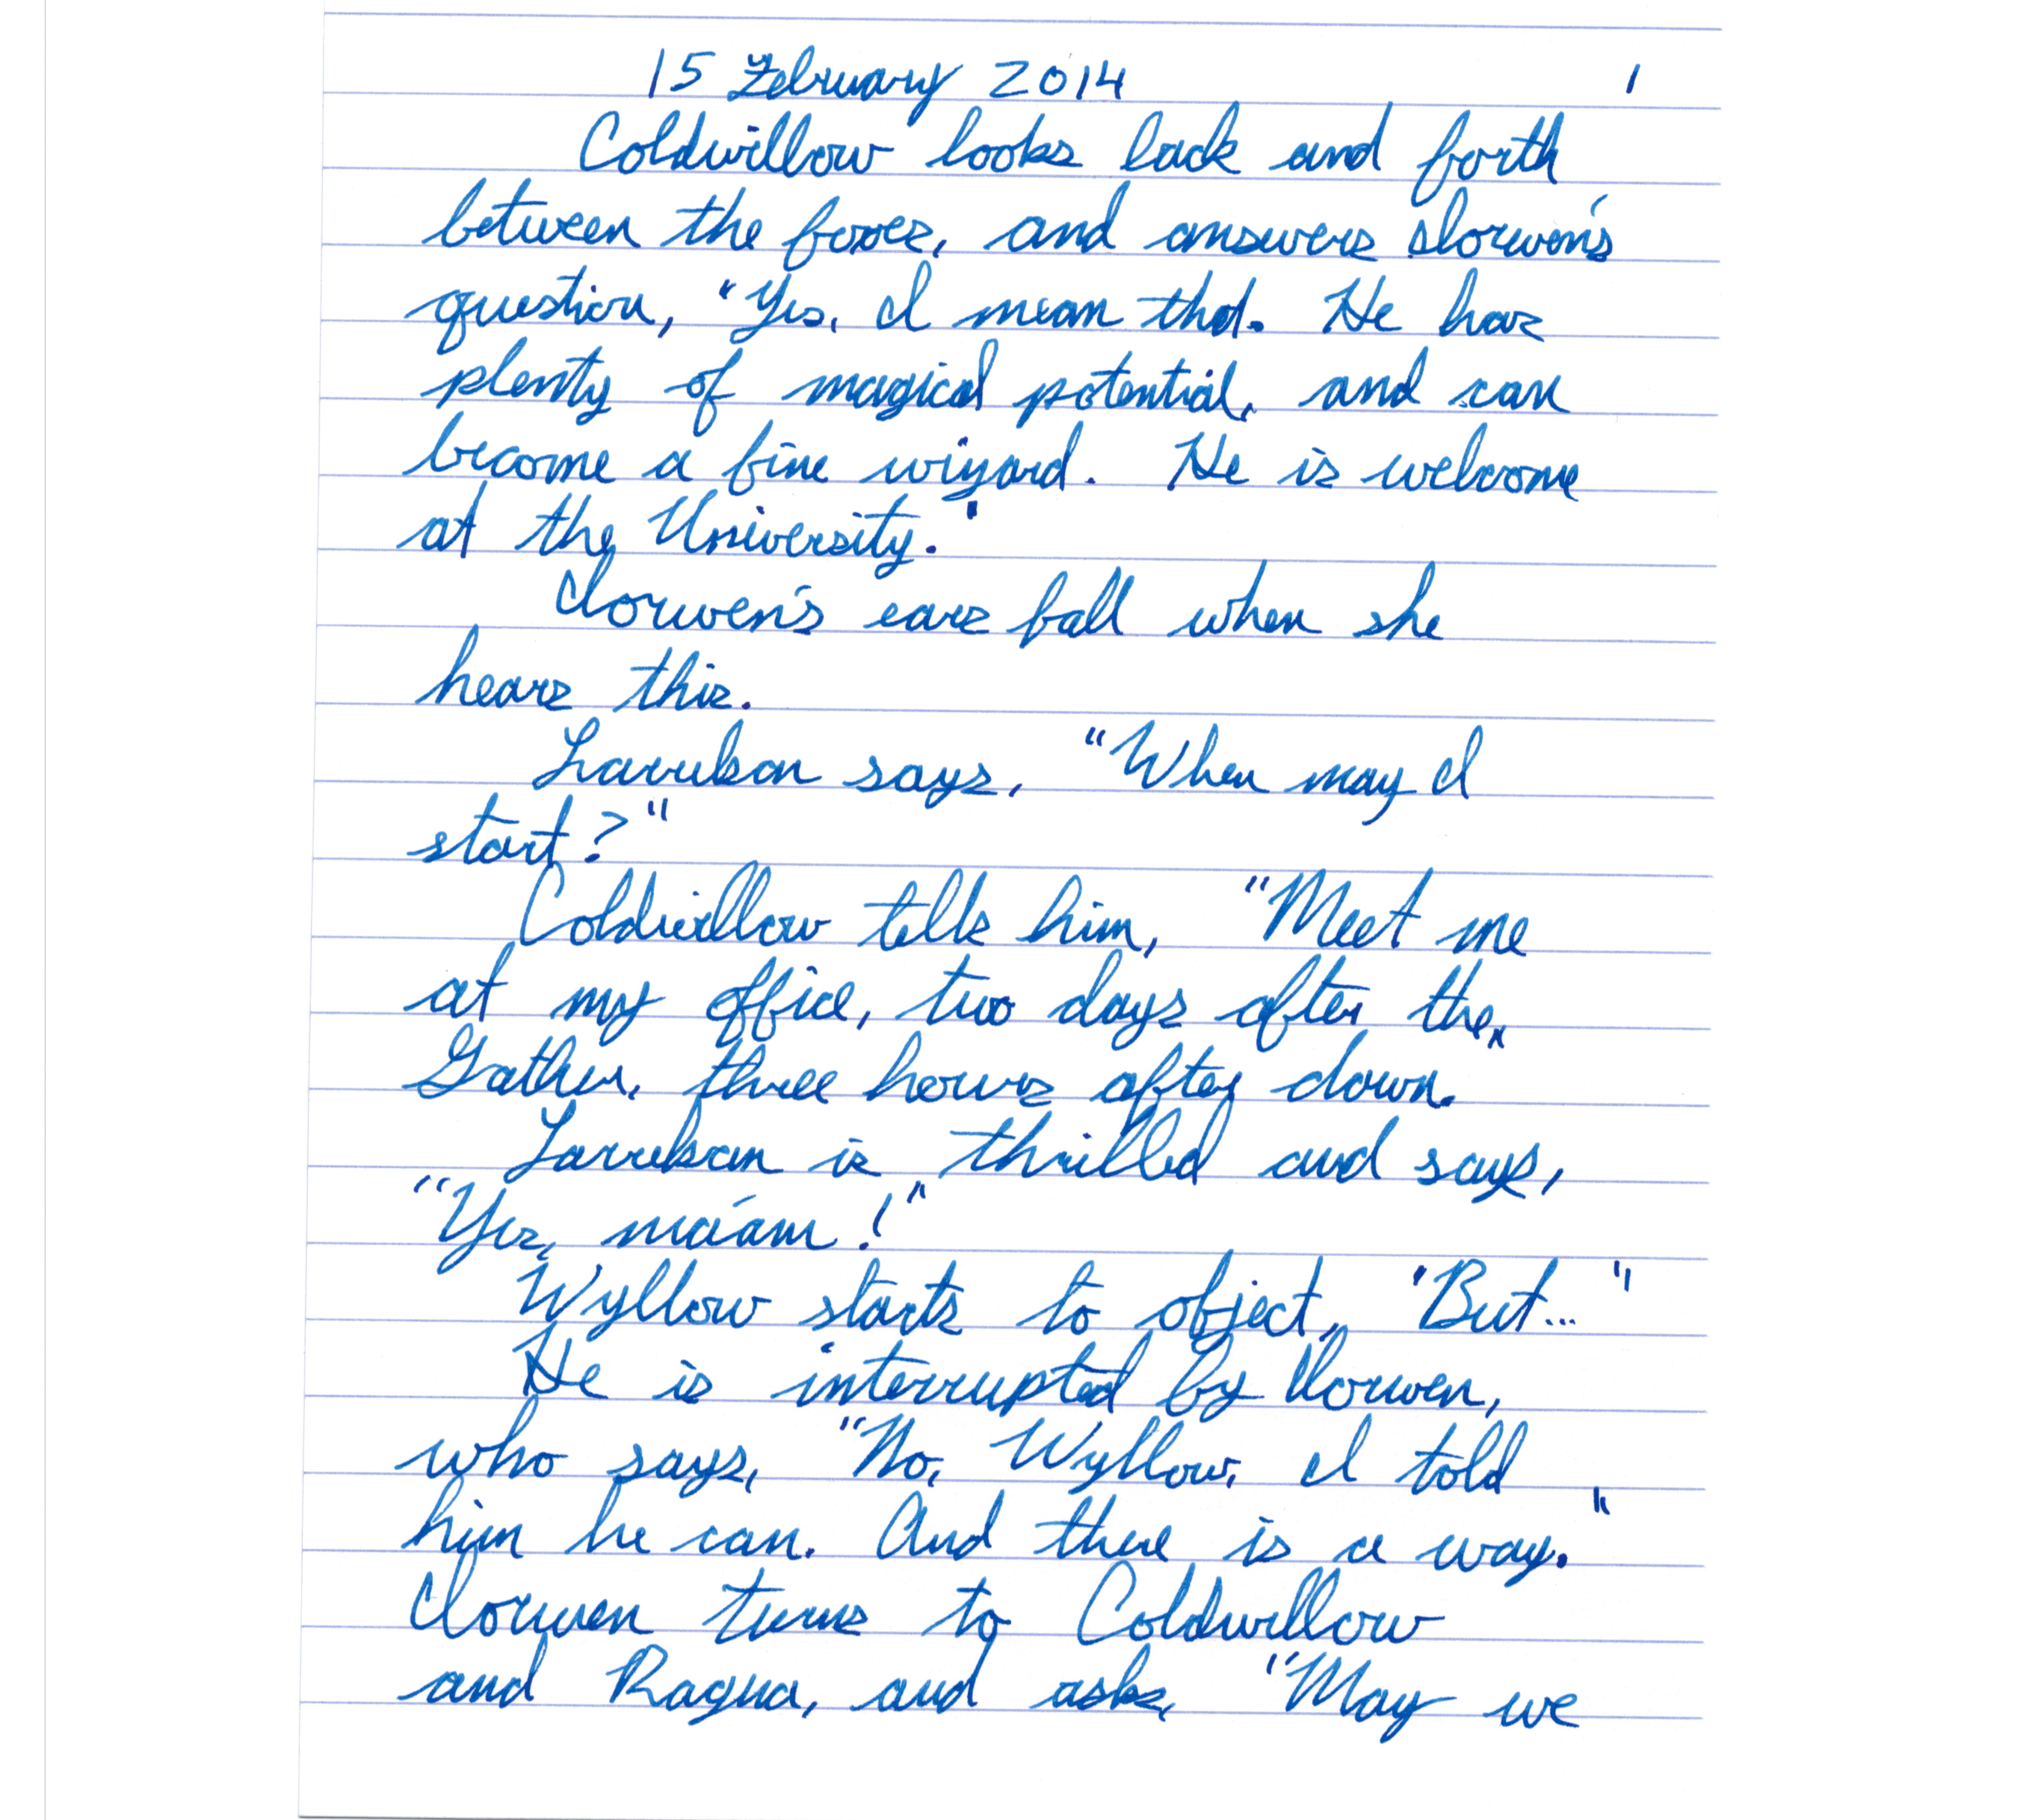 15 February 2014 1
Coldwillow looks back and forth
between the foxes, and answers Slorwen's
question, "Yes, I mean that. He has
plenty of magical potential, and can
become a fine wizard. He is welcome
at the University."
Slorwen's ears fall when she
hears this.
says, "When may I
start?"
Coldwillow tells him, "Meet me
at my office, two days after the
Gather, three hours after dawn.
is thrilled and says,
"Yes, ma'am!"
Wyllow starts to object, "But..."
He is interrupted by Slorwen,
who says, "No, Wyllow, I told
him he can. And there is a way."
Slorwen turns to Coldwillow
and Ragna, and asks, "May we